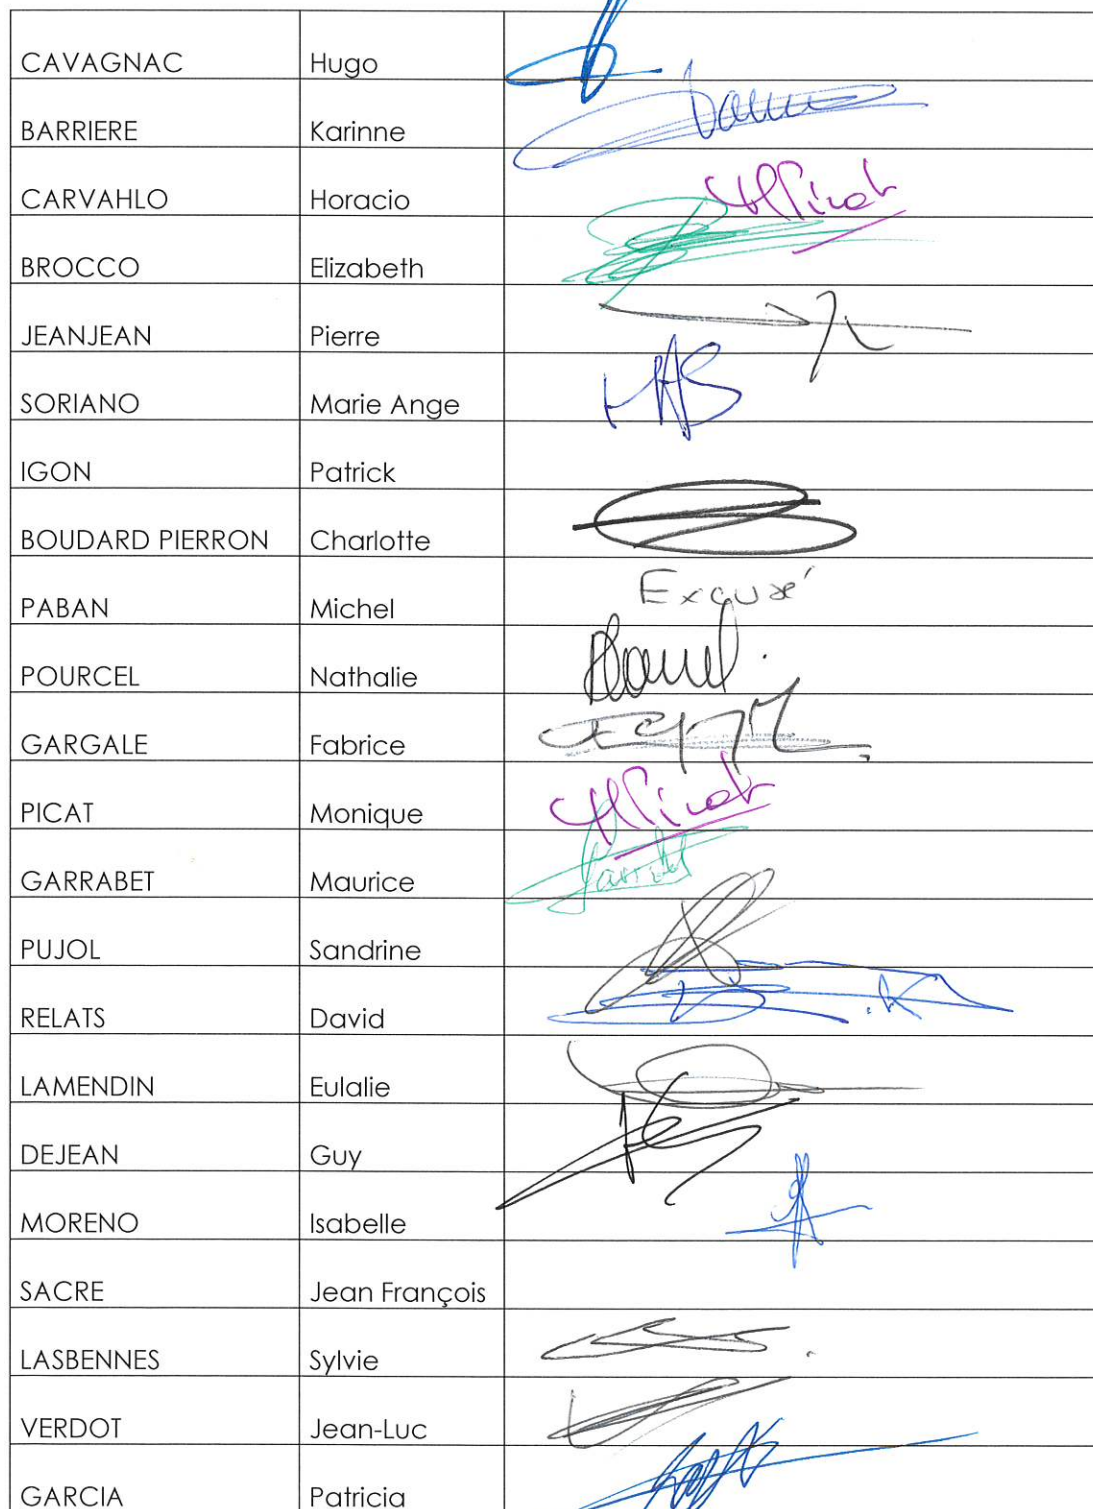 CAVAGNAC Hugo
BARRIERE Karinne
CARVAHLO Horacio
BROCCO Elizabeth
JEANJEAN Pierre
SORIANO Marie Ange MAS
IGON Patrick
BOUDARD PIERRON Charlotte
PABAN Michel Excusé
POURCEL Nathalie
GARGALE Fabrice
PICAT Monique
GARRABET Maurice
PUJOL Sandrine
RELATS David
LAMENDIN Eulalie
DEJEAN Guy
MORENO Isabelle
SACRE Jean François
LASBENNES Sylvie
VERDOT Jean-Luc
GARCIA Patricia